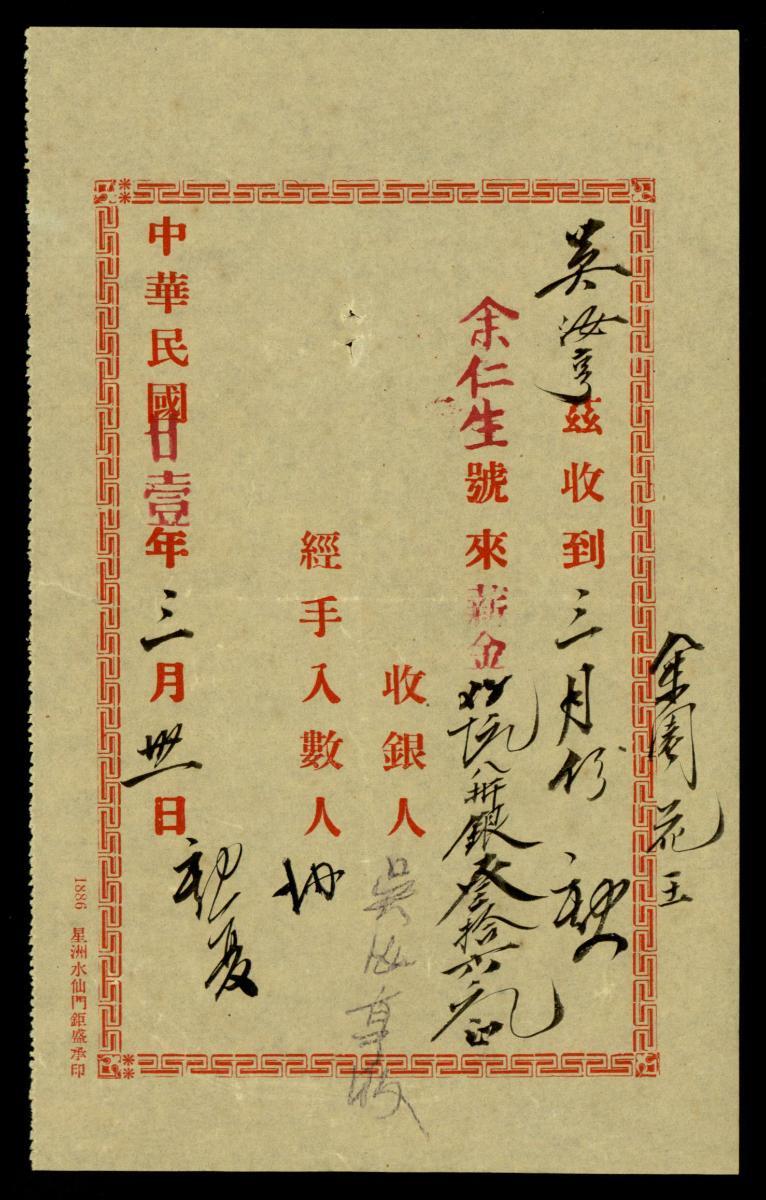 余園花王
吳汝亨茲收到三月份
余仁生號來薪金八卅銀叁拾六元正
收銀人吳汝亨收
經手入數人
中華民國廿壹年三月卅一日
1886 星洲水仙門鉅盛承印